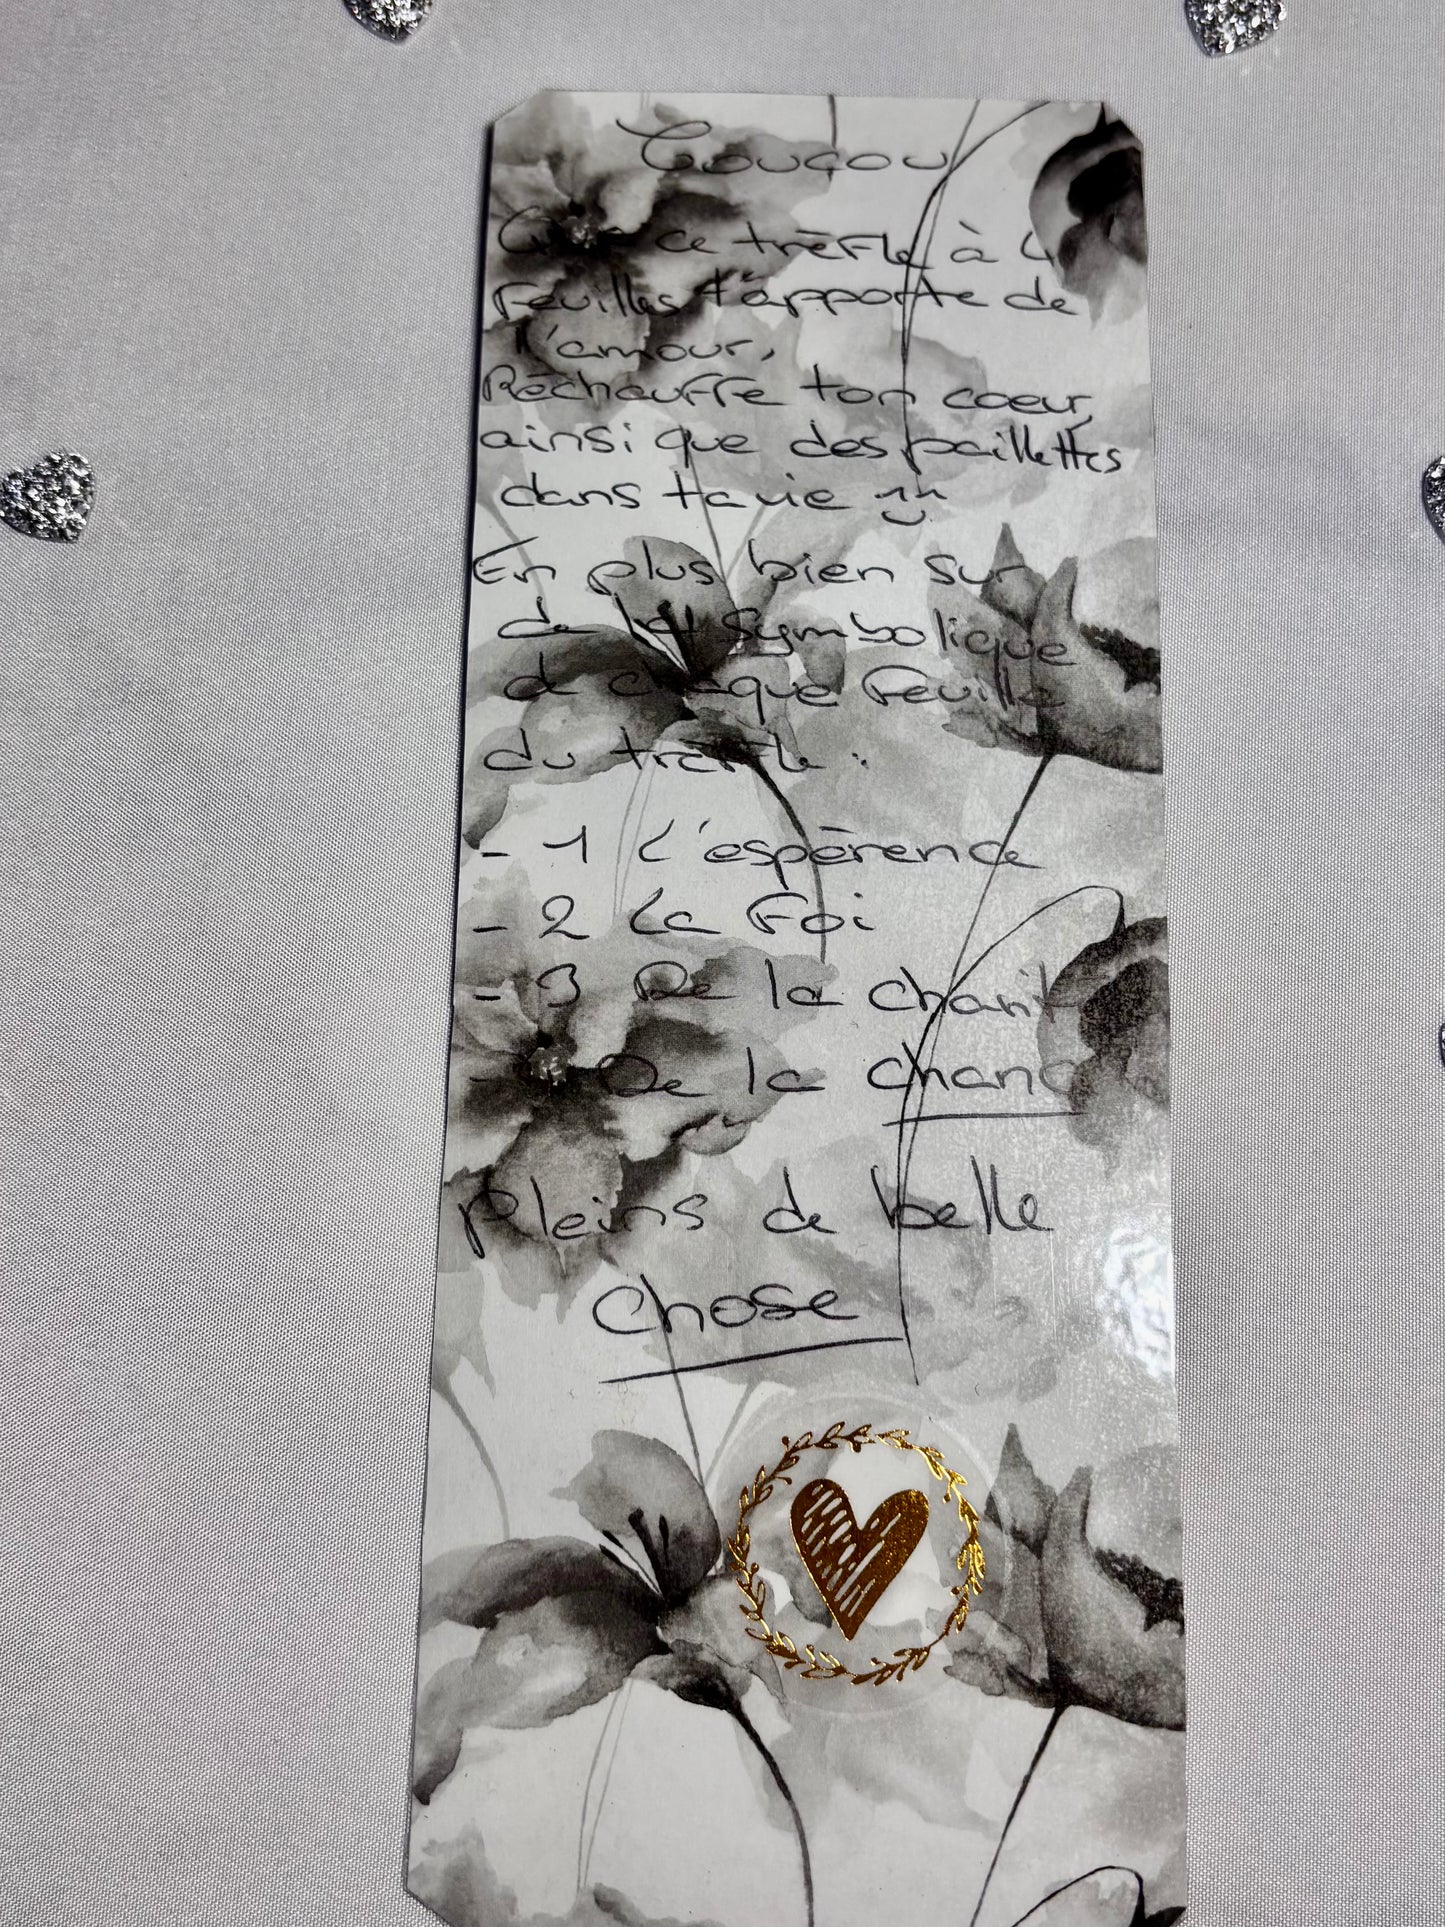 Coucou
Que ce trèfle à 4
feuilles t'apporte de
l'amour,
Réchauffe ton coeur,
ainsi que des paillettes
dans ta vie
En plus bien sur
de la symbolique
d chaque feuille
du trèfle :
- 1 L'espérence
- 2 La Foi
- 3 De la charit
- De la chanc
Pleins de belle
chose